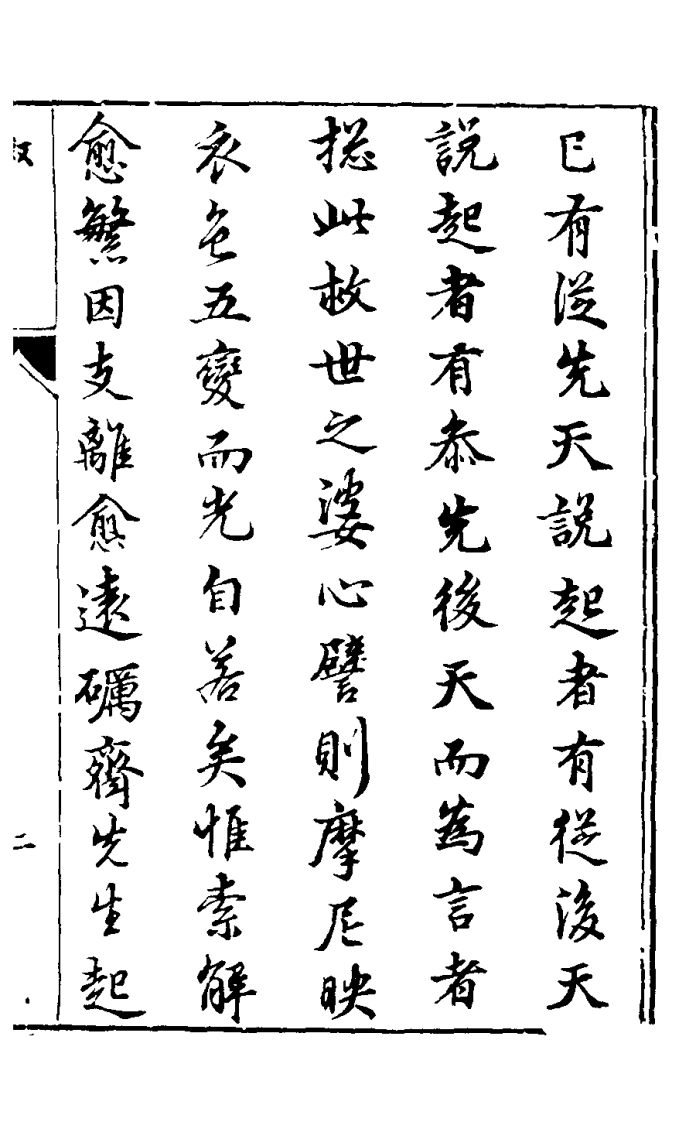 已有從先天說起者有從後天
說起者有叅先後天而為言者
揔此救世之婆心譬則摩尼映
衣色五變而光自若矣惟索解
愈繁因支離愈遠礪齋先生起
叙
二